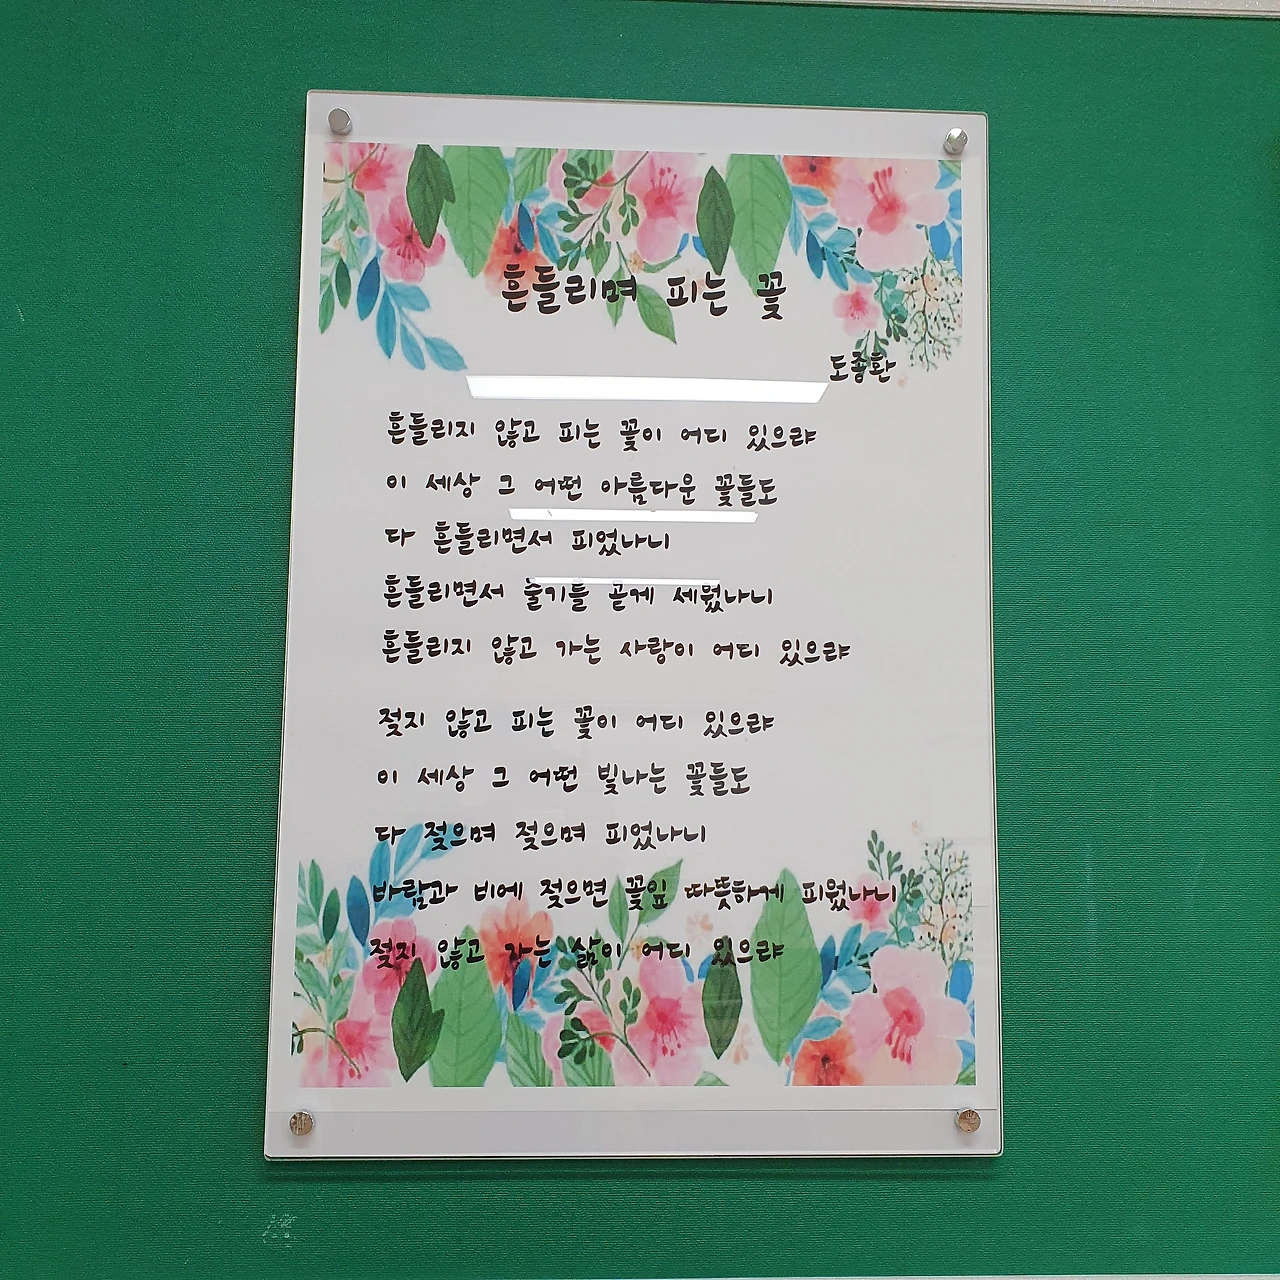 흔들리며 피는 꽃
도종환
흔들리지 않고 피는 꽃이 어디 있으랴
이 세상 그 어떤 아름다운 꽃들도
다 흔들리면서 피었나니
흔들리면서 줄기를 곧게 세웠나니
흔들리지 않고 가는 사랑이 어디 있으랴
젖지 않고 피는 꽃이 어디 있으랴
이 세상 그 어떤 빛나는 꽃들도
다 젖으며 젖으며 피었나니
바람과 비에 젖으면 꽃잎 따뜻하게 피웠나니
젖지 않고 가는 삶이 어디 있으랴